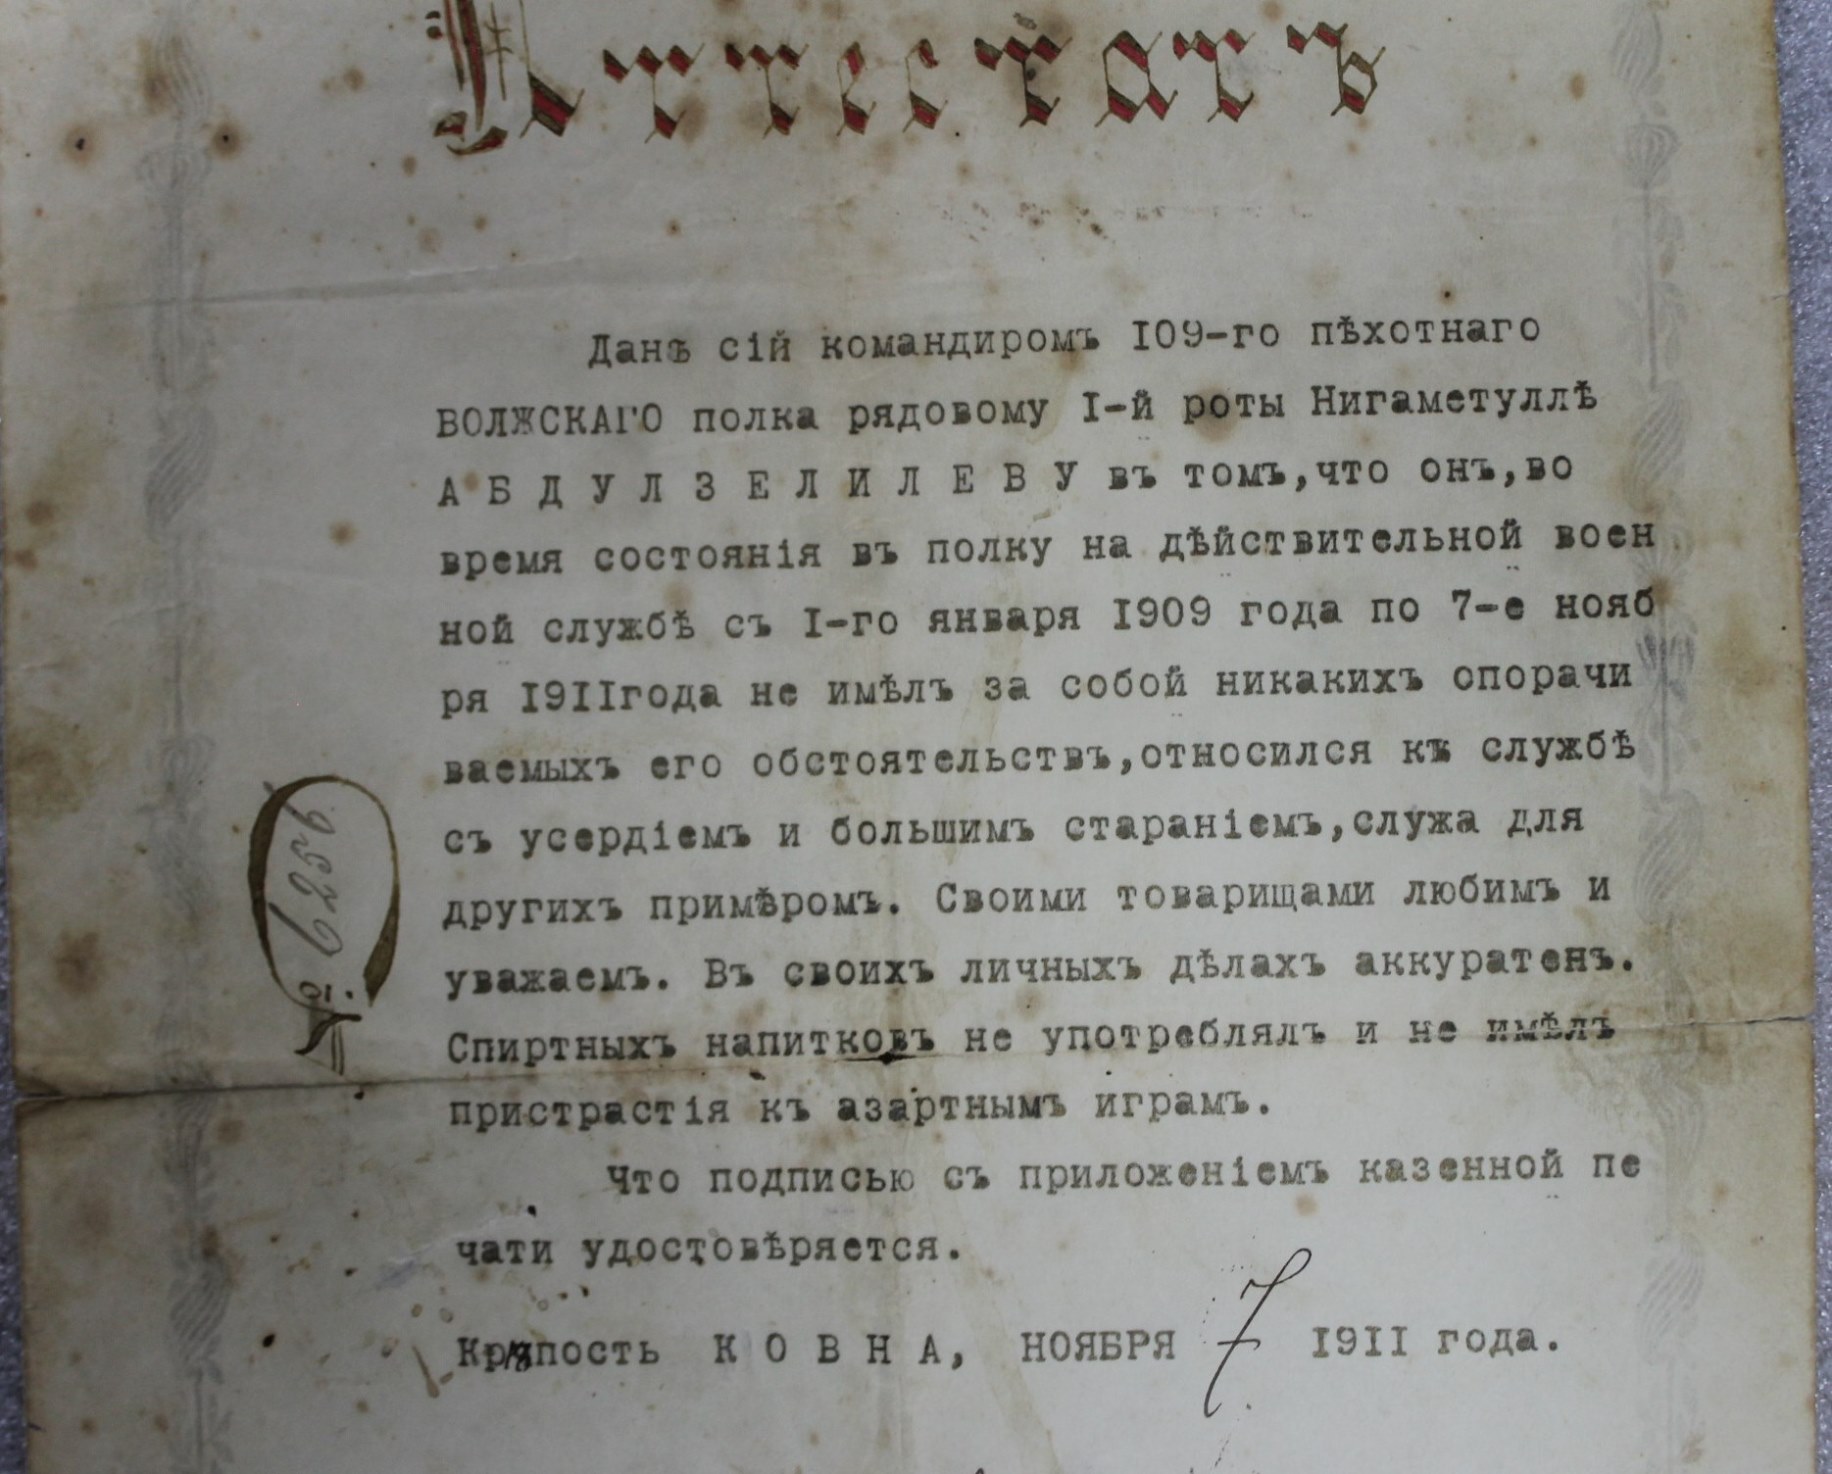 Аттестатъ
Данъ сій командиромъ I09-го пѣхотнаго
ВОЛЖСКАГО полка рядовому I-й роты Нигаметуллѣ
А Б Д У Л З Е Л И Л Е В У въ томъ,что онъ,во
время состоянія въ полку на дѣйствительной воен
ной службѣ съ I-го января I909 года по 7-е нояб
ря I9IIгода не имѣлъ за собой никакихъ опорачи
ваемыхъ его обстоятельствъ,относился къ службѣ
съ усердіемъ и большимъ стараніемъ,служа для
другихъ примѣромъ. Своими товарищами любимъ и
уважаемъ. Въ своихъ личныхъ дѣлахъ аккуратенъ.
Спиртныхъ напитковъ не употреблялъ и не имѣлъ
пристрастія къ азартнымъ играмъ.
Что подписью съ приложеніемъ казенной пе
чати удостовѣряется.
Крѣпость К О В Н А, НОЯБРЯ 7 I9II года.
№ 6256